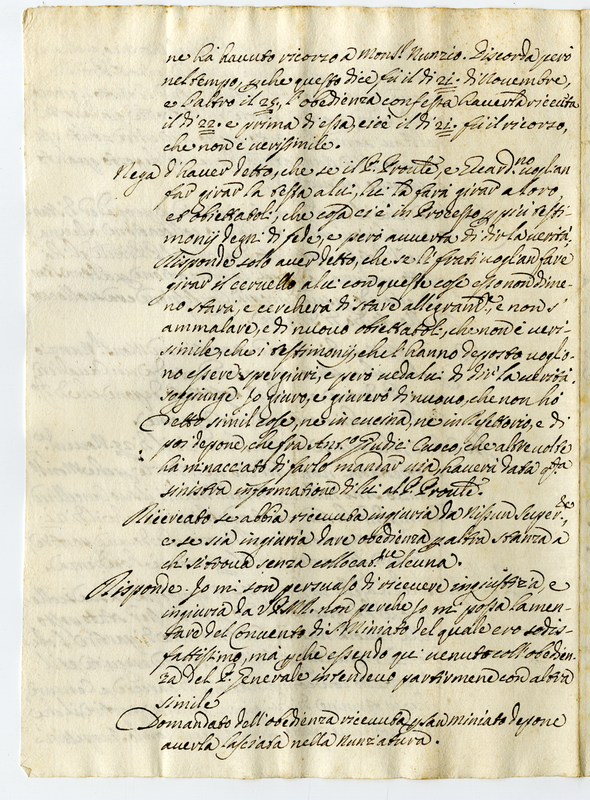 ne hà havuto ricorzo a Mons.r Nunzio. Discorda però
nel tempo, p che questo dice fù il dì 21. di Novembre,
e l'altro il 25, l'obedienza confessa haverla ricevuta
il dì 22. e prima di essa, cioè il dì 21. fù il ricorzo,
che non è verisimile.
Nega d'haver detto, che se il P. Pronle, e Ricard.no voglian
far girar la testa a lui, lui la farà girar a loro,
et obiettatoli, che cosa ciò è in Processo p più testi-
monij degni di fede, e però avverta di dir la verità,
Risponde solo aver detto, che se li frati voglian fare
girar il cervello a lui con queste cose esso nondime-
no starà, e cercherà di stare allegram.te, e non s'
ammalare, e di nuovo obiettatoli, che non è veri-
simile, che i testimonij, che l'hanno deposto voglio-
no essere spergiuri, e però veda lui di dir la verità.
soggiunge. Io giuro, e giurerò di nuovo, che non hò
detto simil cose, ne in cucina, ne in Refettorio, e di
poi depone, che fra Ant.o Giudici Cuoco, che altre volte
hà minacciato di farlo mandar via, haverà data q.ta
sinistra informatione di lui al P. Pronle.
Ricercato se abbia ricevuta ingiuria da nissun Super.re,
e se sia ingiuria dare obedienza p altra stanza a
chi si trova senza collocat.ne alcuna.
Risponde. Io mi son persuaso di ricevere ingiustizia, e
ingiuria da non perche Io mi possa lamen-
tare del Convento di S. Miniato del quale ero sodis-
fattissimo, ma p che essendo quì venuto coll'obedien-
za del P. Generale intendevo partirmene con altra
simile
Domandato dell'obedienza ricevuta p San Miniato depone
averla lasciata nella Nunziatura.